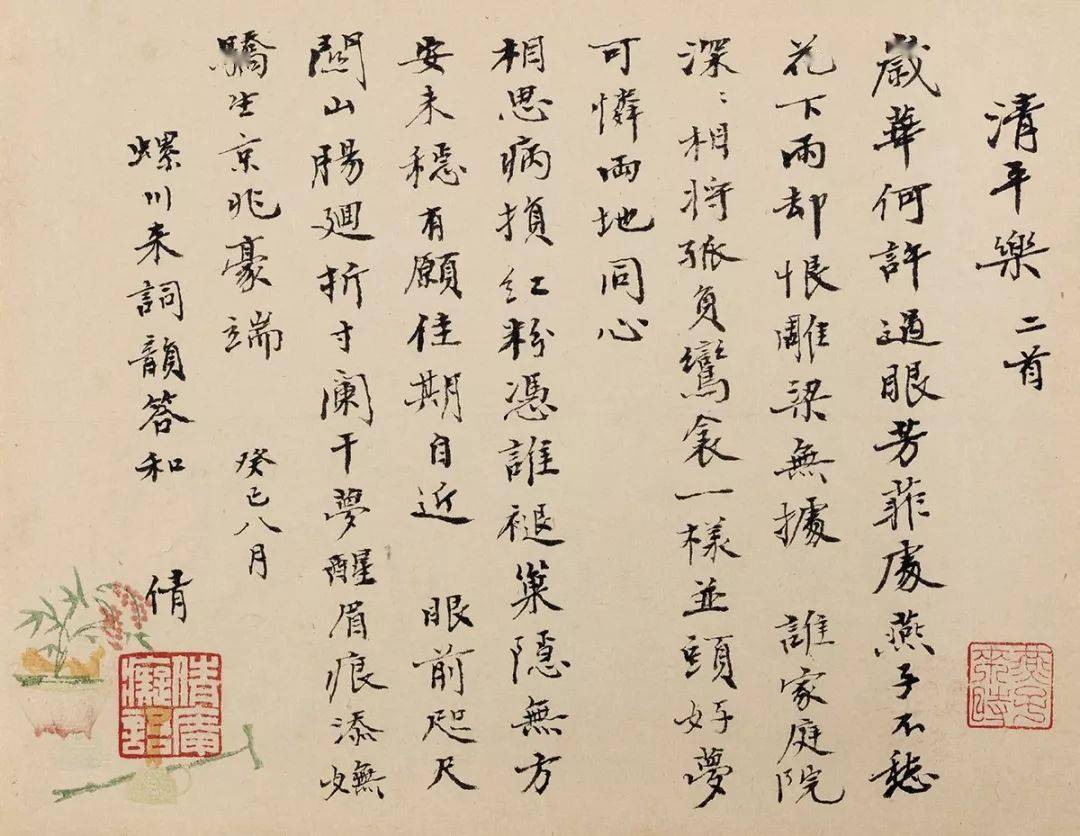 清平樂 二首
歲華何許過眼芳菲處燕子不愁
花下雨却恨雕梁無據 誰家庭院
深〻相將孤負鸞衾一樣並頭好夢
可憐兩地同心
相思病損紅粉憑誰褪巢隱無方
安未穩有願佳期自近 眼前咫尺
關山腸廻折寸闌干夢醒眉痕添嫵
驕生京兆豪端 癸巳八月
螺川来詞韻答和 倩
燕子來時
倩庵癡語